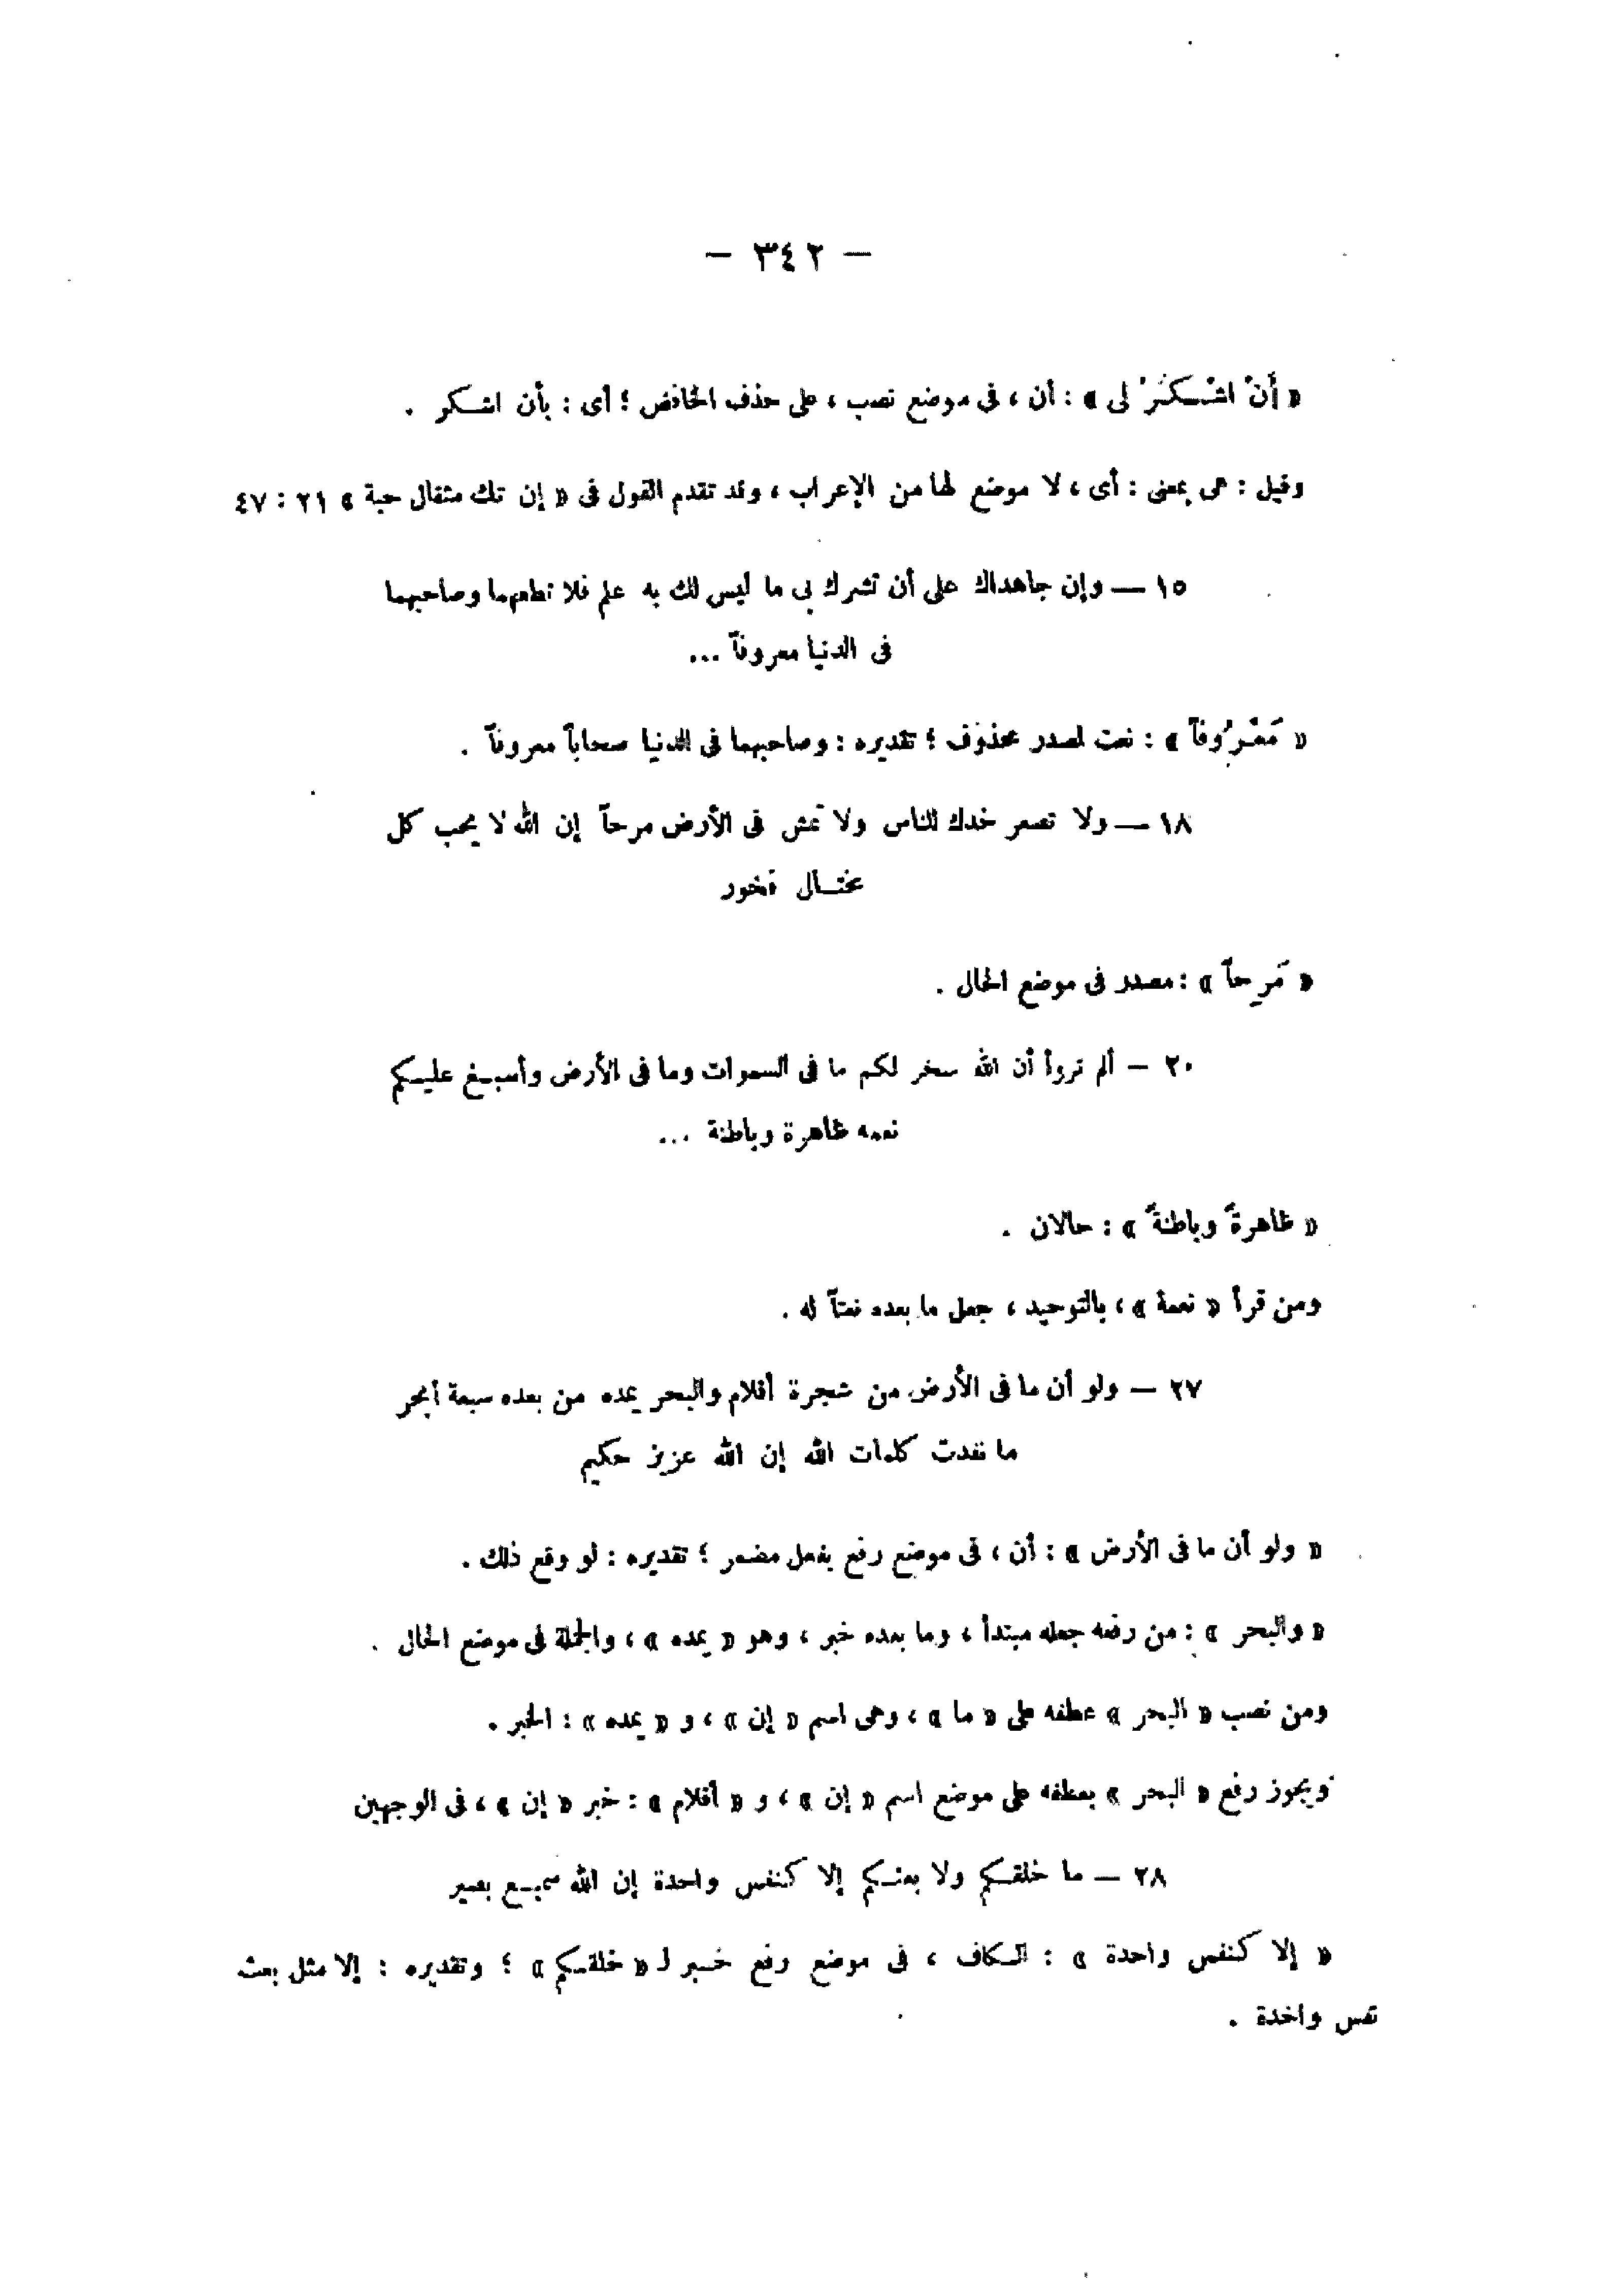 — ٣٤٢ —
« أَنْ اشْكُرْ لى » : أن ، فى موضع نصب ، على حذف الخافض ؛ أى : بأن اشكر .
وقيل : هى بمعنى : أى ، لا موضع لها من الإعراب ، وقد تقدم القول فى « إن تك مثقال حبة » ٢١ : ٤٧
١٥ — وإن جاهداك على أن تشرك بى ما ليس لك به علم فلا تطعهما وصاحبهما
فى الدنيا معروفاً ...
« مَعْرُوفاً » : نعت لمصدر محذوف ؛ تقديره : وصاحبهما فى الدنيا صحاباً معروفاً .
١٨ — ولا تصعر خدك للناس ولا تمش فى الأرض مرحاً إن الله لا يحب كل
مختال فخور
« مَرِحاً » : مصدر فى موضع الحال .
٢٠ — ألم تروا أن الله سخر لكم ما فى السموات وما فى الأرض وأسبغ عليكم
نعمه ظاهرة وباطنة ...
« ظاهرةً وباطنةً » : حالان .
ومن قرأ « نعمة » ، بالتوحيد ، جعل ما بعده نعتاً له .
٢٧ — ولو أن ما فى الأرض من شجرة أقلام والبحر يمده من بعده سبعة أبحر
ما نفدت كلمات الله إن الله عزيز حكيم
« ولو أن ما فى الأرض » : أن ، فى موضع رفع بفعل مضمر ؛ تقديره : لو وقع ذلك .
« والبحر » : من رفعه جعله مبتدأ ، وما بعده خبر ، وهو « يمده » ، والجملة فى موضع الحال .
ومن نصب « البحر » عطفه على « ما » ، وهى اسم « إن » ، و « يمده » : الخبر .
ويجوز رفع « البحر » بعطفه على موضع اسم « إن » ، و « أقلام » : خبر « إن » ، فى الوجهين
٢٨ — ما خلقكم ولا بعثكم إلا كنفس واحدة إن الله سميع بصير
« إلا كنفس واحدة » : الكاف ، فى موضع رفع خبر لـ « خلقكم » ؛ وتقديره : إلا مثل بعث
نفس واحدة .